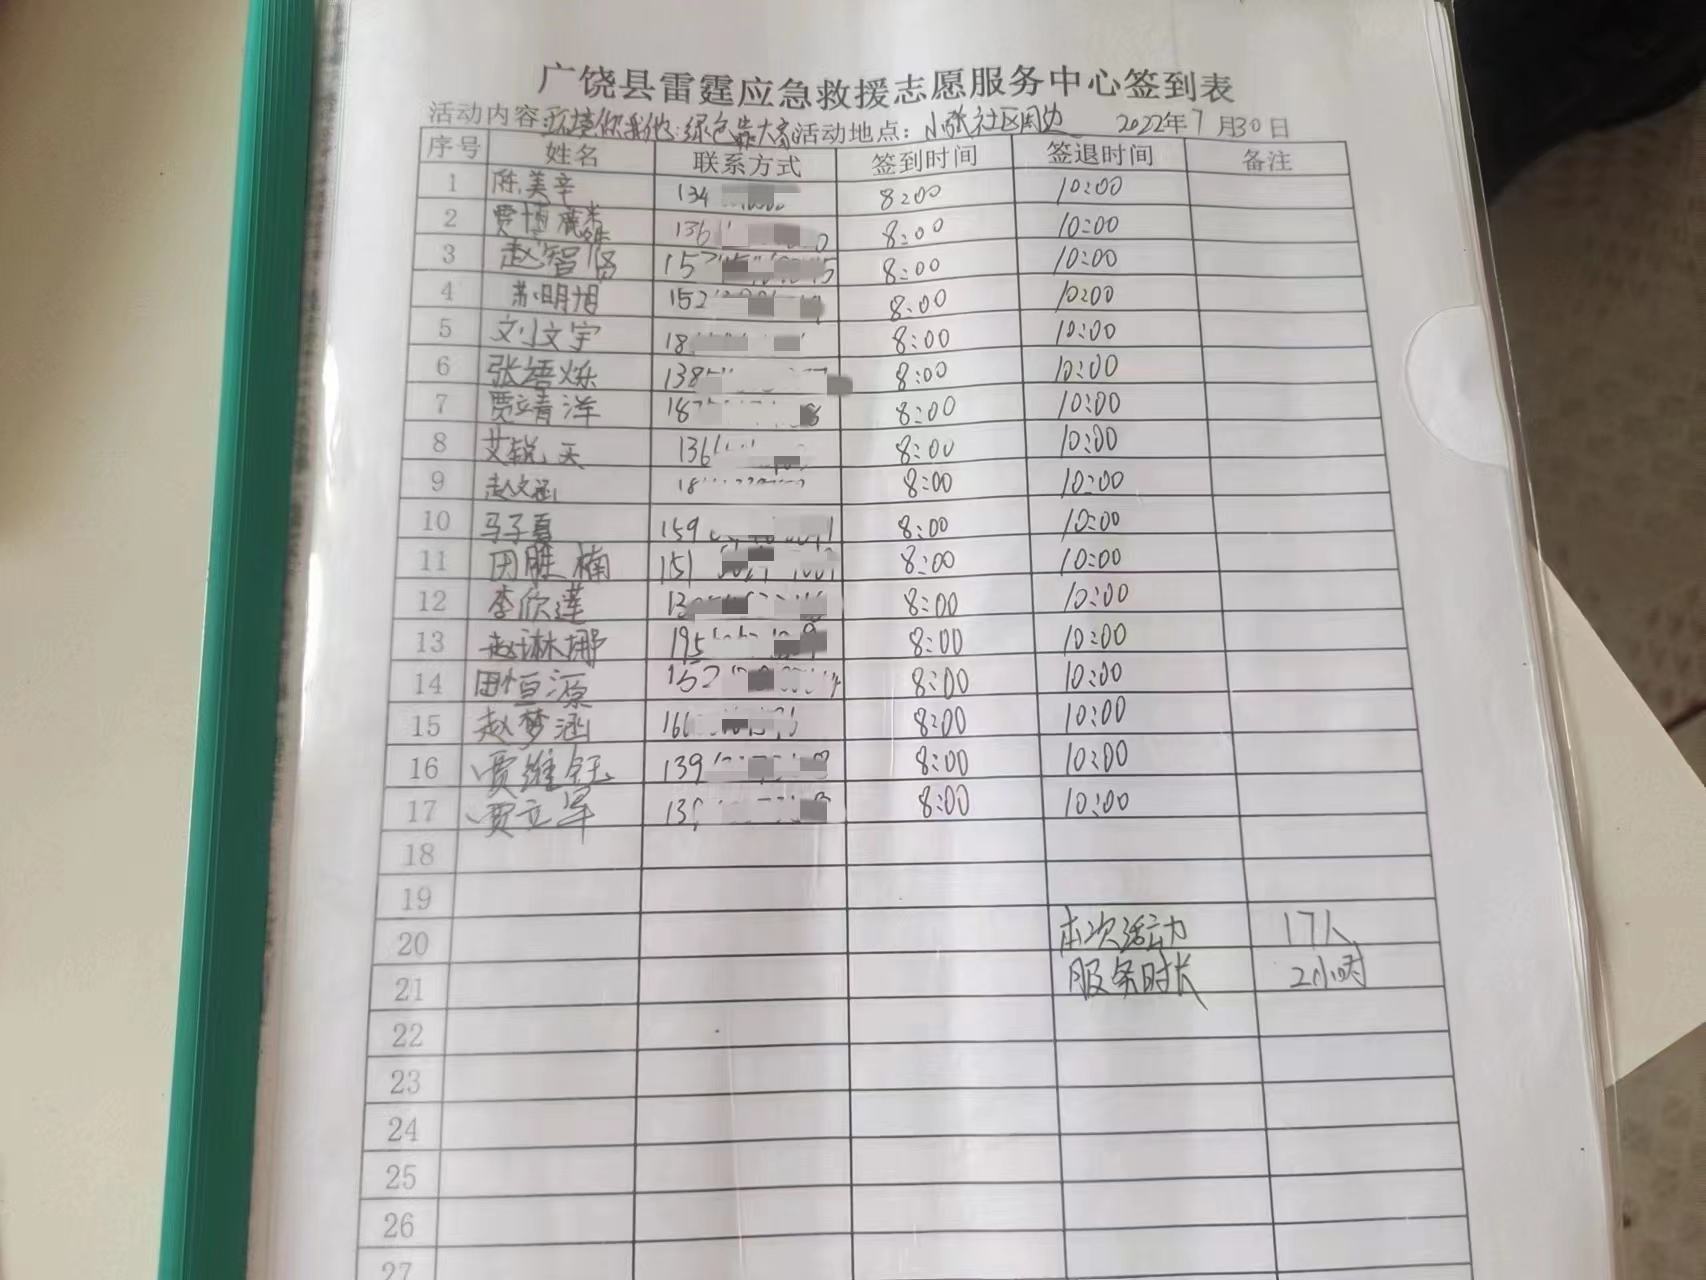 广饶县雷霆应急救援志愿服务中心签到表
活动内容:环境你我他:绿色靠大家 活动地点:小张社区周边 2022年7月30日
序号 姓名 联系方式 签到时间 签退时间 备注
1 陈美辛 134 8:00 10:00
2 贾 136 8:00 10:00
3 赵智贤 157 8:00 10:00
4 苏明旭 152 8:00 10:00
5 刘文宇 18 8:00 10:00
6 张梧烁 138 8:00 10:00
7 贾靖洋 187 8:00 10:00
8 艾锐天 136 8:00 10:00
9 赵文涵 18 8:00 10:00
10 马子夏 159 8:00 10:00
11 田胜楠 151 8:00 10:00
12 李欣莲 13 8:00 10:00
13 赵琳娜 195 8:00 10:00
14 田恒源 152 8:00 10:00
15 赵梦涵 166 8:00 10:00
16 贾维钰 139 8:00 10:00
17 贾立军 13 8:00 10:00
18
19
20 本次活动 17人
21 服务时长 2小时
22
23
24
25
26
27